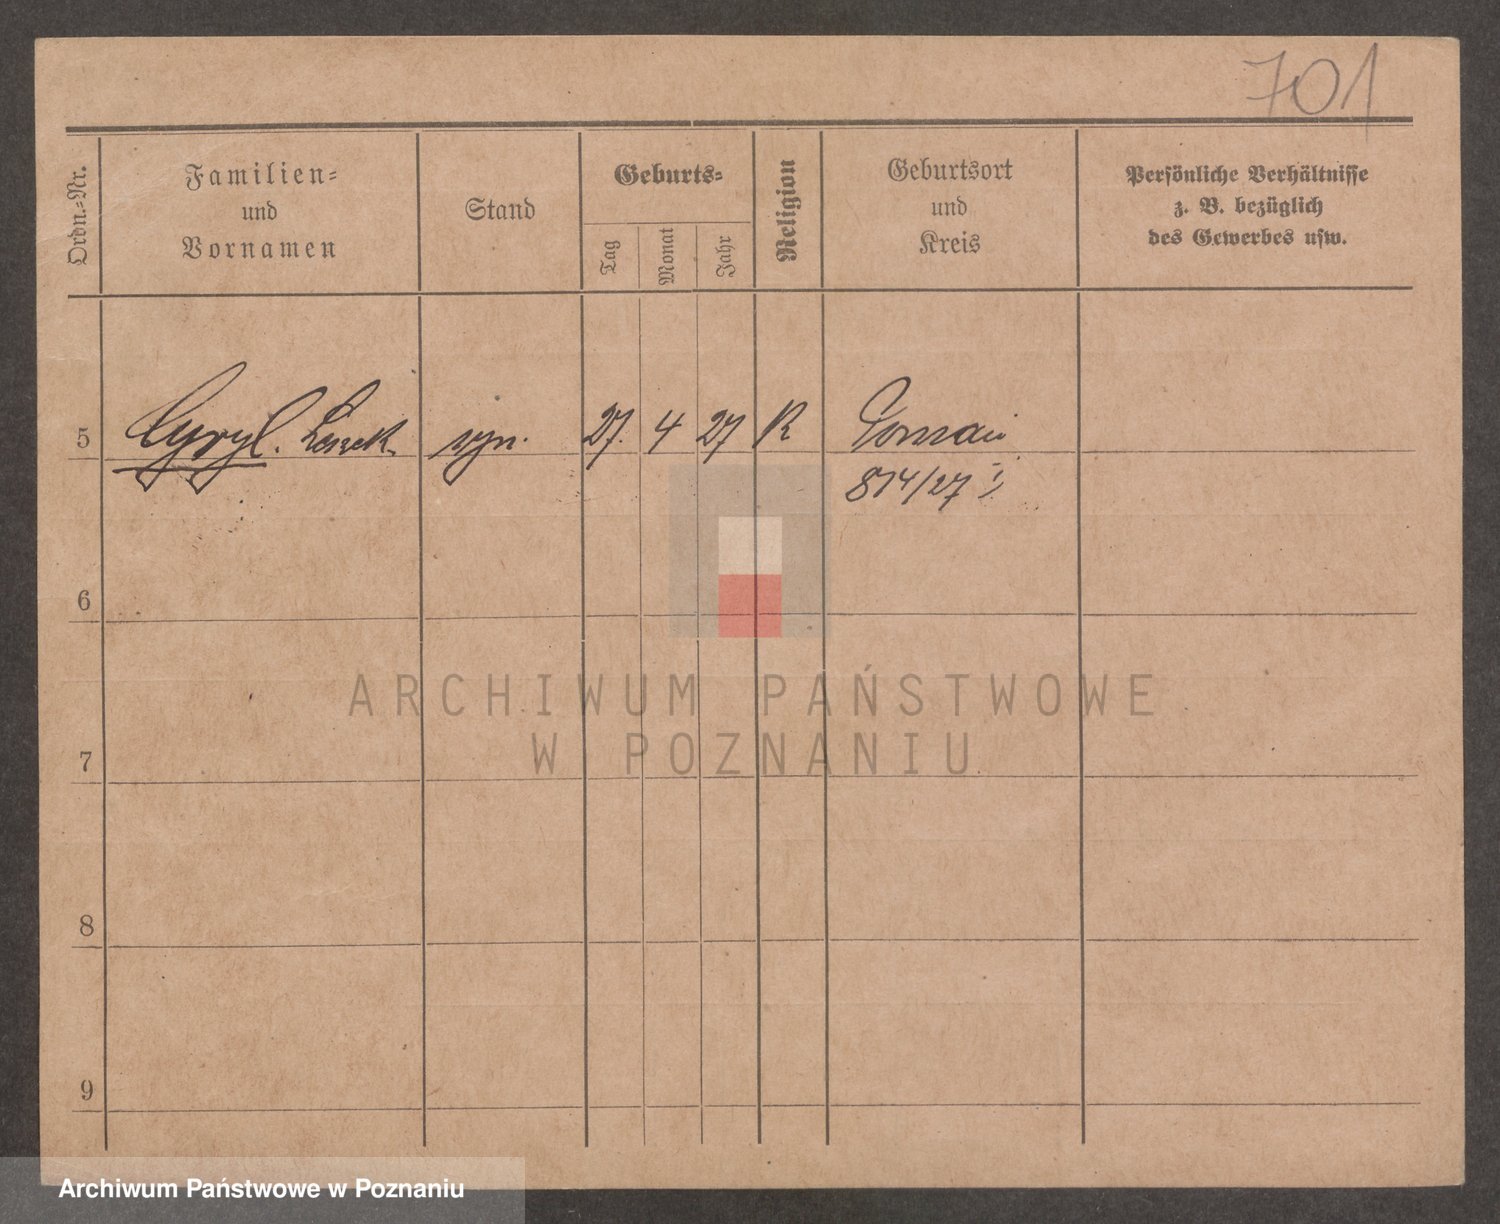 701
Ordn.-Nr.
Familien-
und
Vornamen
Stand
Geburts-
Tag
Monat
Jahr
Religion
Geburtsort
und
Kreis
Persönliche Verhältnisse
z. B. bezüglich
des Gewerbes usw.
5 Cyryl. Leszek syn. 27. 4 27 R
814/27
6
7
8
9
ARCHIWUM PAŃSTWOWE
W POZNANIU
Archiwum Państwowe w Poznaniu